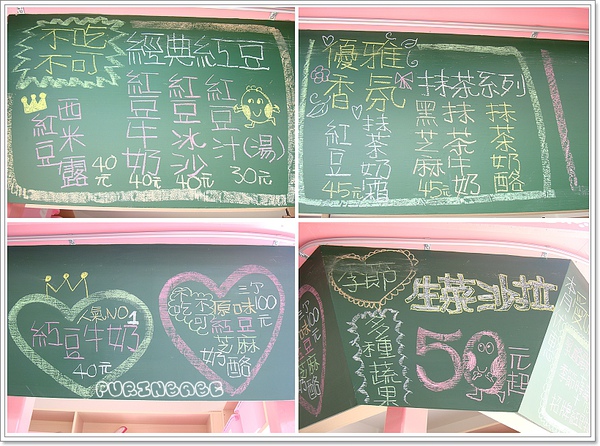 不吃
不可
經典紅豆
紅豆西米露
40元
紅豆牛奶
40元
紅豆冰沙
40元
紅豆汁(湯)
30元
優雅
香氛
抹茶系列
紅豆抹茶奶霜
45元
黑芝麻抹茶牛奶
45元
抹茶奶酪
人氣NO1
紅豆牛奶
40元
不吃不可
原味
紅豆
芝麻
奶酪
三個100元
PURINBABE
季節
生菜沙拉
多種蔬果
50元起